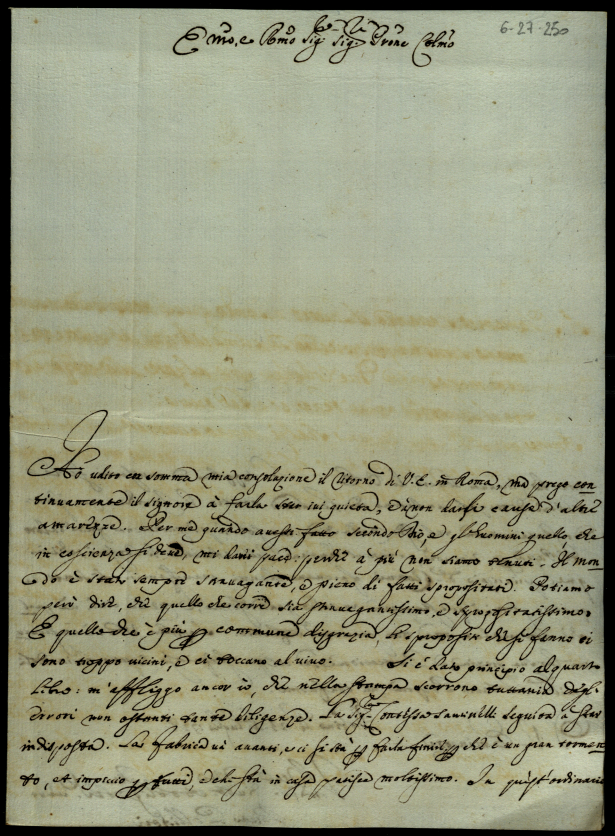 6-27-250
Emo, e Rmo Sigr Sigr Prone Colmo
Ho udito con somma mia consolazione il ritorno di V. E. in Roma, ma prego con
tinuamente il Signore à farla star ivi quieta, e à non darle cause d'altre
amarezze. Per me quando avessi fatto secondo Dio, e gl'huomini quello che
in coscienza si deve, mi darei pace: perche à più non siamo tenuti. Il mon
do è stato sempre stravagante, e pieno di fatti spropositati. Potiamo
però dire, che quello che corre sia stravagantissimo, e spropositatissimo.
E quello che è più p commune disgrazia, li spropositi che si fanno ci
sono troppo vicini, e ci toccano al vivo. Si è dato principio al quarto
libro: m'affliggo ancor io, che nella stampa scorrono tuttavia degl'
errori non ostanti tante diligenze. La Sigra Contessa seguita à star
indisposta. La fabrica và avanti, e ci si stà p farla finire, p che è un gran tormen
to, et impiccio p tutti, e chi stà in casa patisce moltissimo. In quest'ordinario